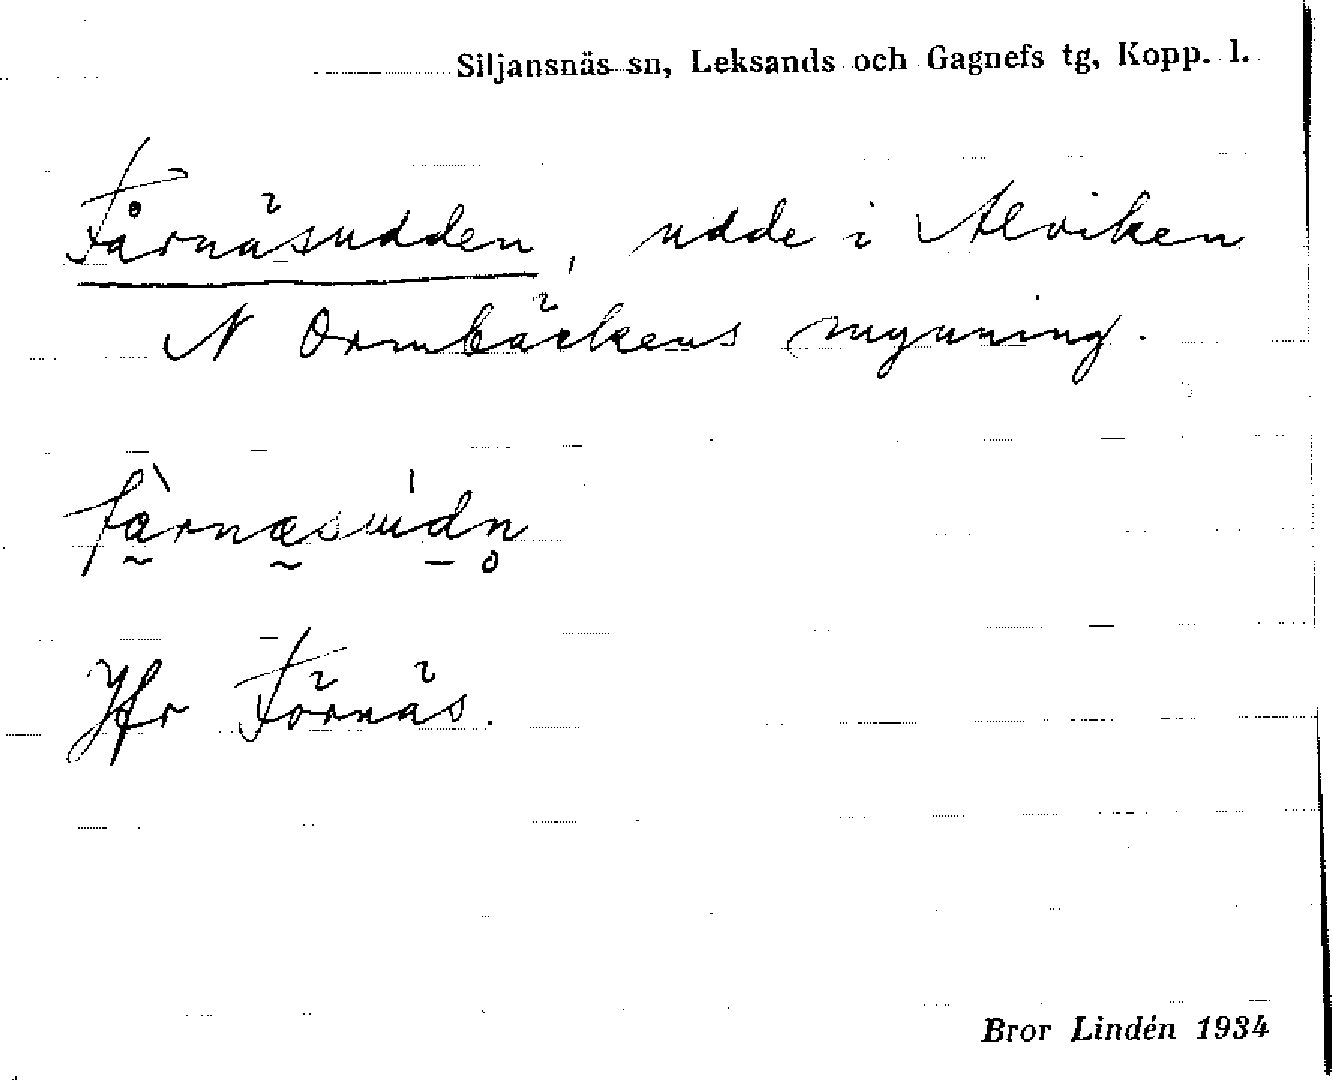 Siljansnäs sn, Leksands och Gagnefs tg, Kopp. l.
Fårnäsudden, udde i Alviken
N Ormbäckens mynning.
Jfr Förnäs.
Bror Lindén 1934